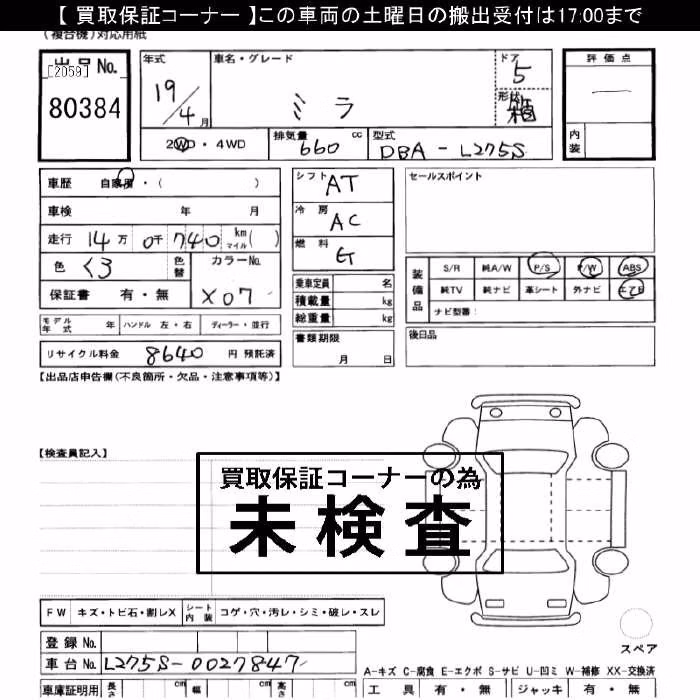 【 買取保証コーナー 】この車両の土曜日の搬出受付は17:00まで
(複合機)対応用紙
出品No. [2059] 80384
年式 19/4月
車名・グレード ミラ
ドア 5
形状 箱
評価点 —
内装
2WD・4WD
排気量 660 cc
型式 DBA-L275S
車歴 自家用・( )
車検 年 月
走行 14万 0千 740 km マイル( )
色 くろ 色替
カラーNo. X07
保証書 有・無
シフト AT
冷房 AC
燃料 G
乗車定員 名
積載量 kg
総重量 kg
セールスポイント
装備品 S/R 純A/W P/S P/W ABS
純TV 純ナビ 革シート 外ナビ エアB
ナビ型番:
モデル年式 年 ハンドル 左・右 ディーラー・並行
書類期限 月 日
後日品
リサイクル料金 8640 円 預託済
【出品店申告欄(不良箇所・欠品・注意事項等)】
【検査員記入】
買取保証コーナーの為
未検査
FW キズ・トビ石・割レX シート内装 コゲ・穴・汚レ・シミ・破レ・スレ
登録No.
車台No. L275S-0027847
スペア
A-キズ C-腐食 E-エクボ S-サビ U-凹ミ W-補修 XX-交換済
車庫証明用 長さ cm 幅 cm 高さ cm
工具 有・無 ジャッキ 有・無